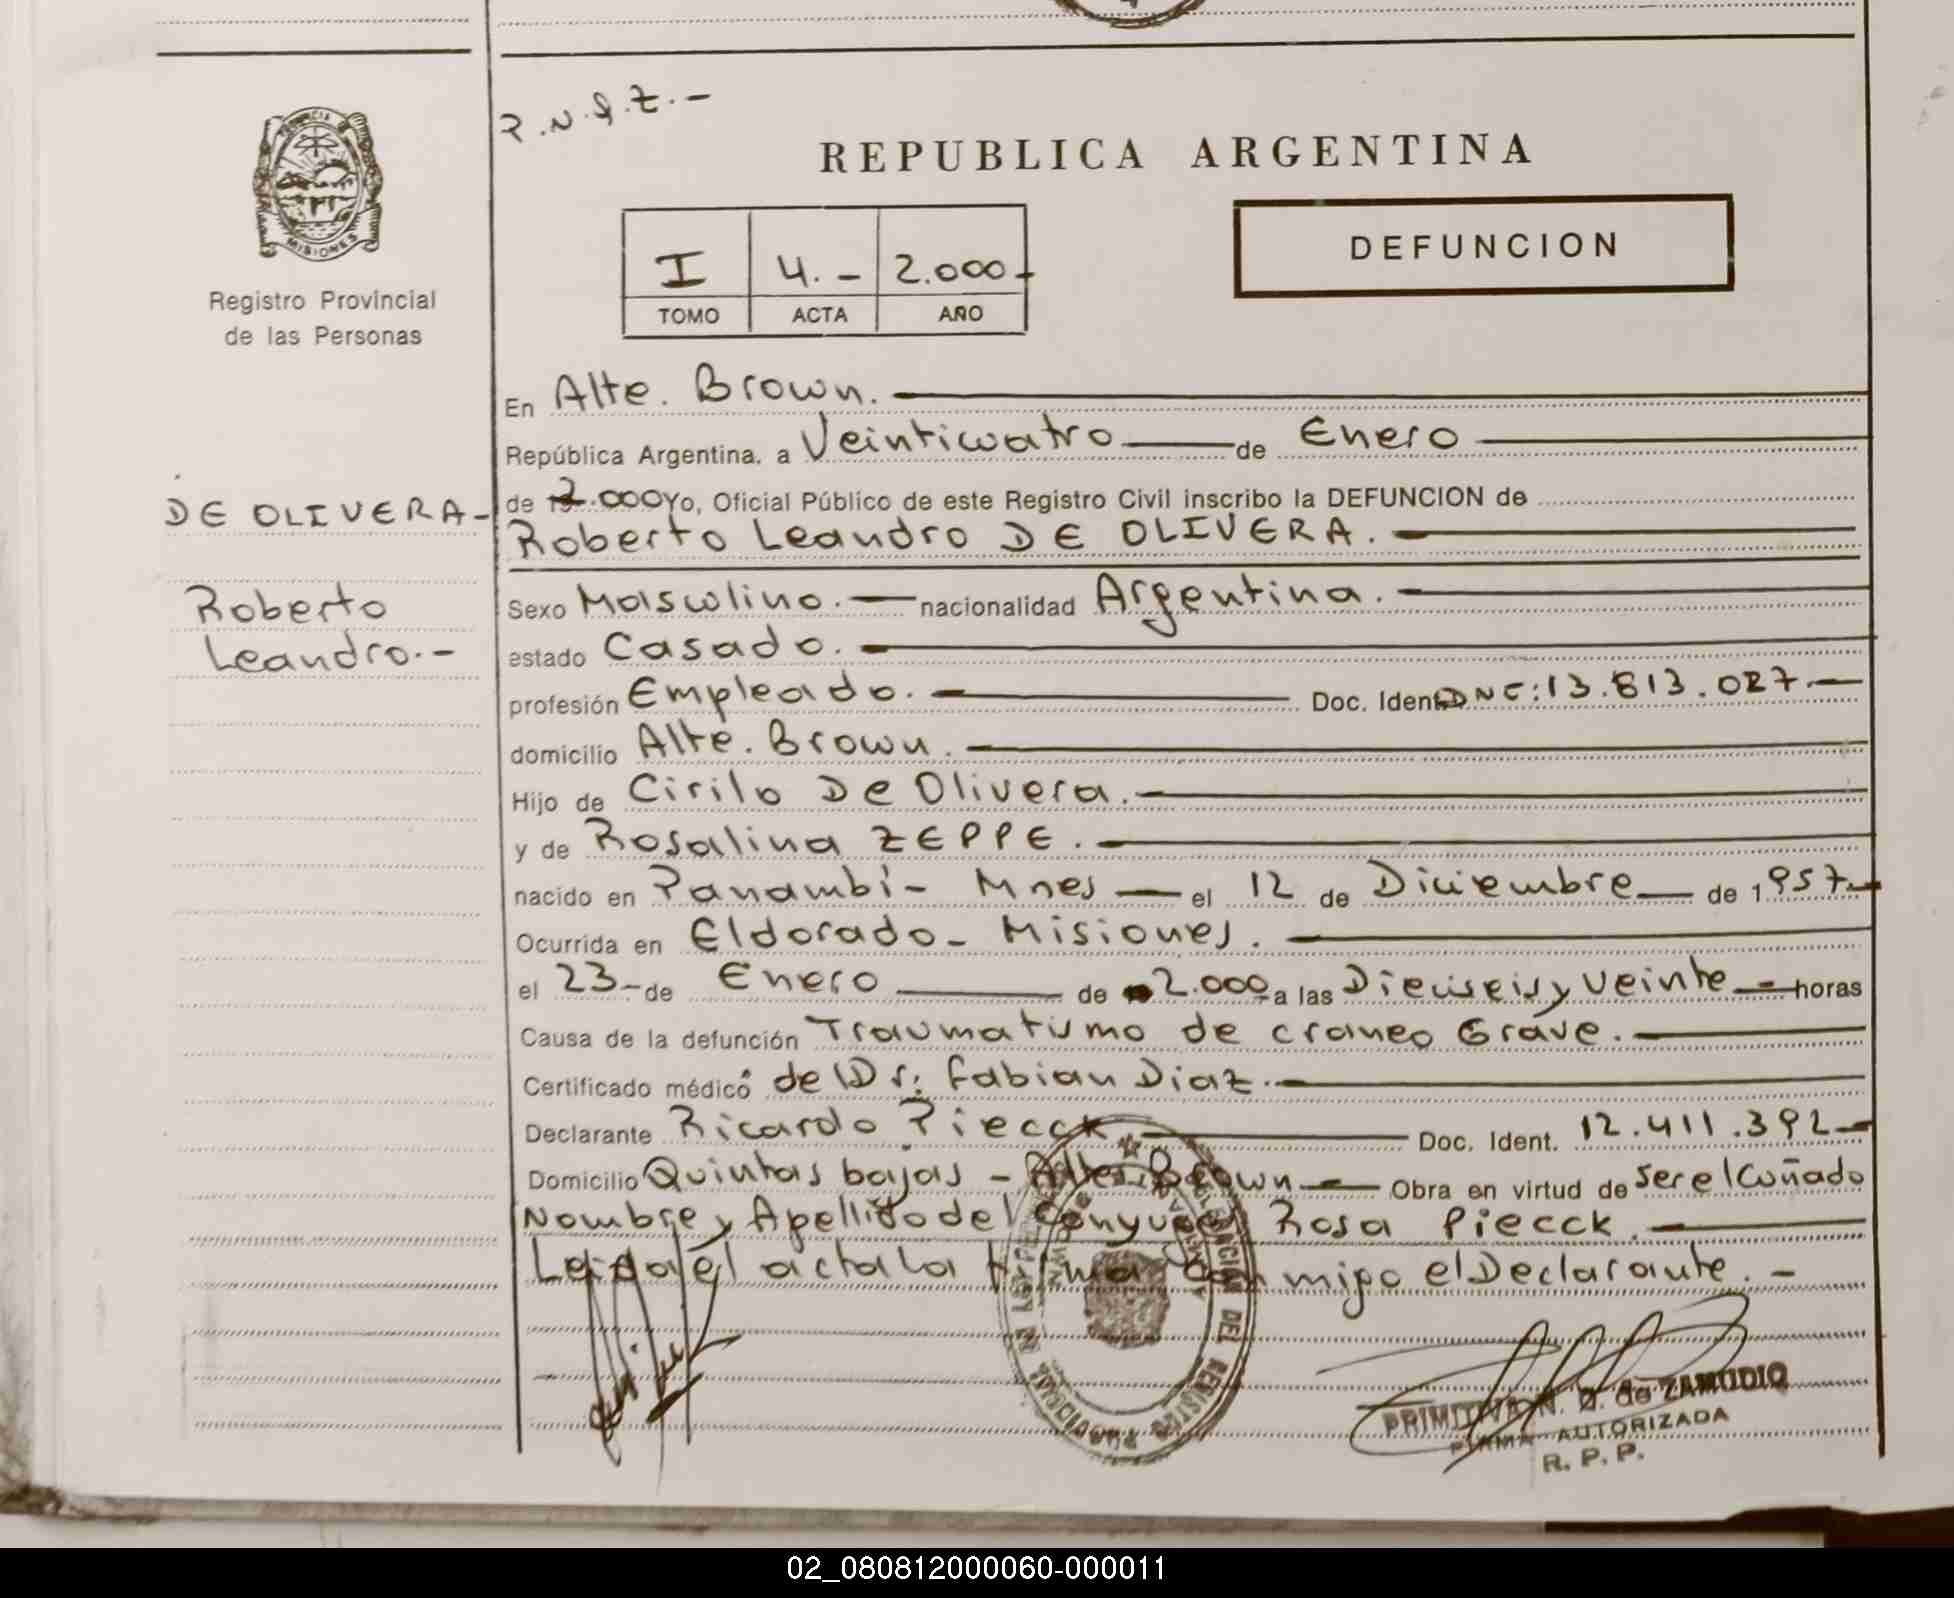 P.N.Q.Z.-
PROVINCIA DE
MISIONES
Registro Provincial
de las Personas
REPUBLICA ARGENTINA
DEFUNCION
I 4.- 2.000-
TOMO ACTA AÑO
En Alte. Brown.
República Argentina, a Veinticuatro de Enero
de 2.000 Yo, Oficial Público de este Registro Civil inscribo la DEFUNCION de
DE OLIVERA-
Roberto
Leandro.-
Roberto Leandro DE OLIVERA.
Sexo Masculino. nacionalidad Argentina.
estado Casado.
profesión Empleado. Doc. Ident. DNI: 13.813.027.-
domicilio Alte. Brown.
Hijo de Cirilo De Olivera.
y de Rosalina ZEPPE.
nacido en Panambí- Mnes el 12 de Diciembre de 1957-
Ocurrida en Eldorado- Misiones.
el 23- de Enero de 2.000 a las Dieciseis y Veinte horas
Causa de la defunción Traumatismo de craneo Grave.
Certificado médico del Dr. Fabian Diaz.
Declarante Ricardo Piecck Doc. Ident. 12.411.392-
Domicilio Quintas bajas - Alte. Brown Obra en virtud de ser el Cuñado
Nombre y Apellido del Conyuge Rosa Piecck.
Leida el acta la firma con migo el Declarante.-
PRIMITIVA N. de ZAMUDIO
FIRMA AUTORIZADA
R. P. P.
02_080812000060-000011